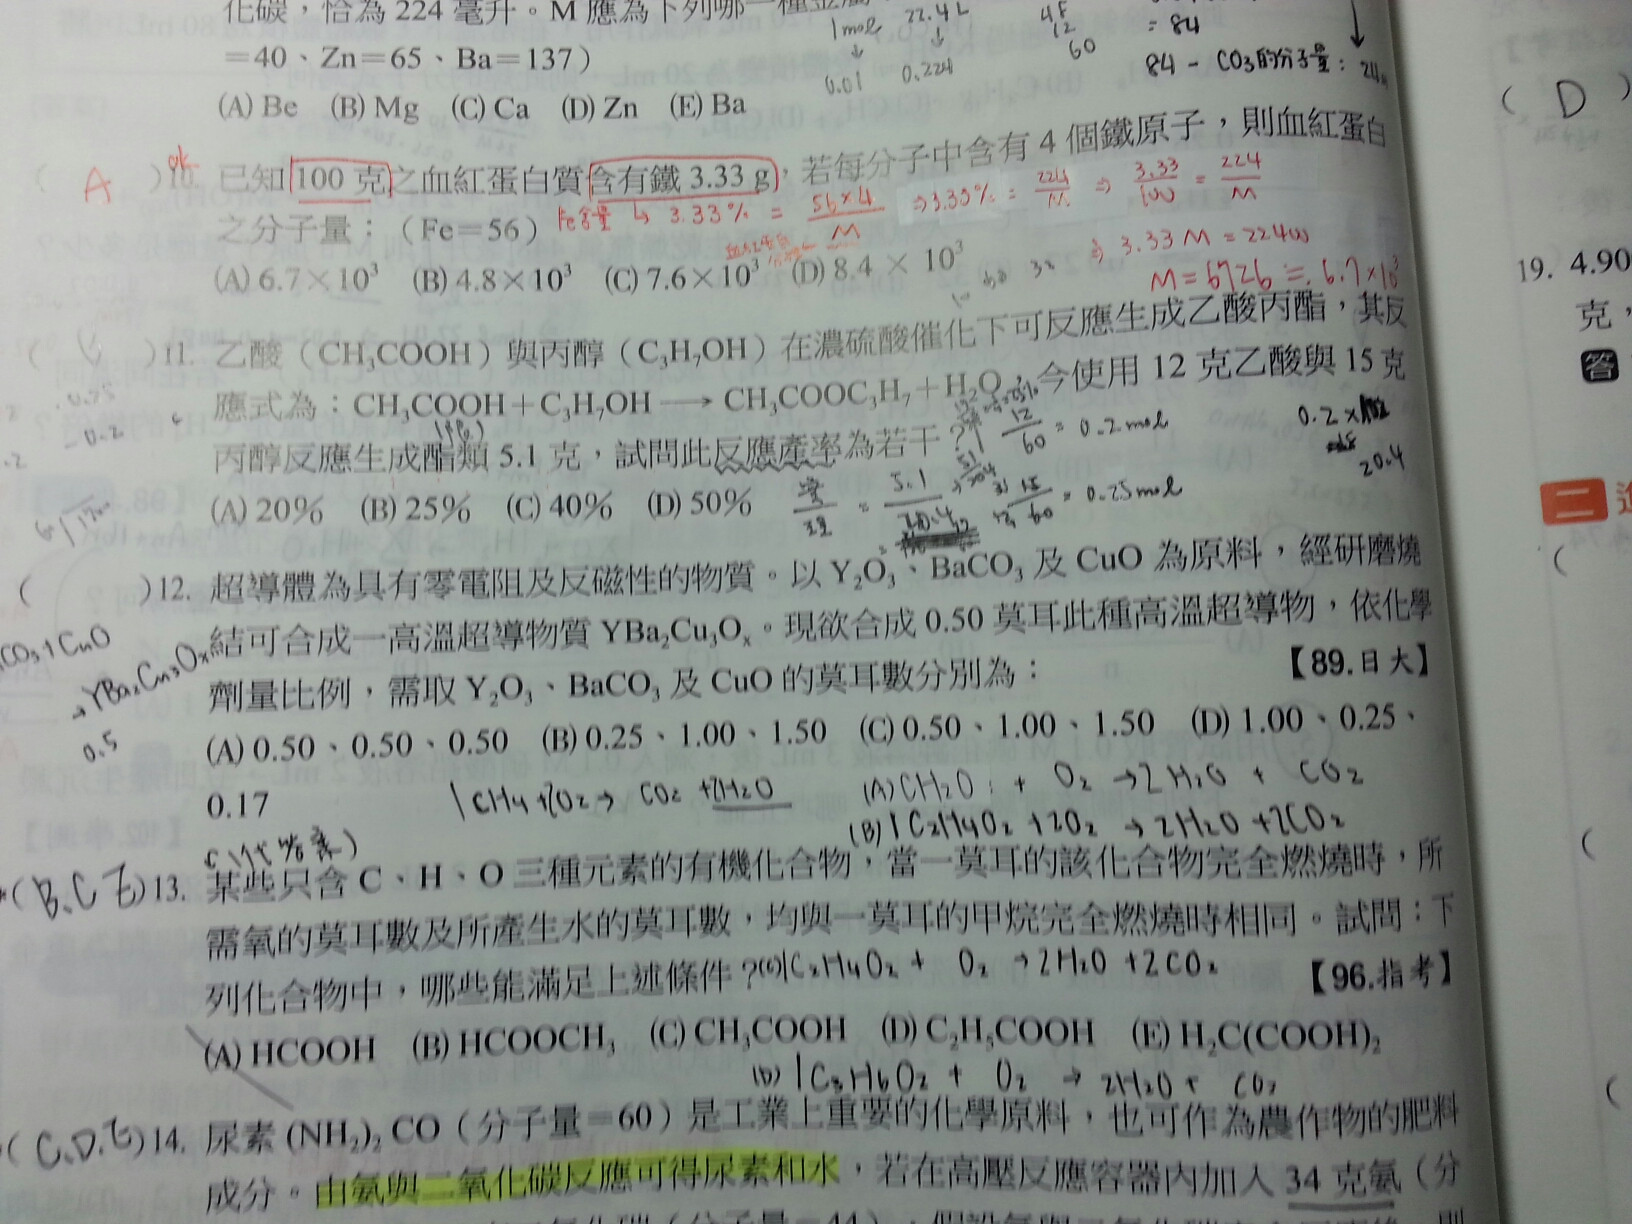 化碳，恰為 224 毫升。M 應為下列哪一種金屬
=40、Zn=65、Ba=137）
(A) Be (B) Mg (C) Ca (D) Zn (E) Ba
1mol 22.4L
0.01 0.224
12
60
= 84
84 - CO3的分子量：24
( D )
( A )10. 已知 100 克之血紅蛋白質含有鐵 3.33 g，若每分子中含有 4 個鐵原子，則血紅蛋白
之分子量：（Fe=56）
Fe含量 ↳ 3.33% = 56×4/M ⇒ 3.33% = 224/M ⇒ 3.33/100 = 224/M
⇒ 3.33 M = 22400
M = 6726 ≒ 6.7×10³
(A) 6.7×10³ (B) 4.8×10³ (C) 7.6×10³ (D) 8.4 × 10³
( )11. 乙酸（CH₃COOH）與丙醇（C₃H₇OH）在濃硫酸催化下可反應生成乙酸丙酯，其反
應式為：CH₃COOH+C₃H₇OH ⟶ CH₃COOC₃H₇+H₂O，今使用 12 克乙酸與 15 克
丙醇反應生成酯類 5.1 克，試問此反應產率為若干？
12/60 = 0.2 mol
0.2 ×
20.4
(A) 20% (B) 25% (C) 40% (D) 50%
實/理 = 5.1/20.4
15/60 = 0.25mol
( )12. 超導體為具有零電阻及反磁性的物質。以 Y₂O₃、BaCO₃ 及 CuO 為原料，經研磨燒
結可合成一高溫超導物質 YBa₂Cu₃Oₓ。現欲合成 0.50 莫耳此種高溫超導物，依化學
劑量比例，需取 Y₂O₃、BaCO₃ 及 CuO 的莫耳數分別為： 【89.日大】
CO₃ + CuO
→ YBa₂Cu₃Oₓ
0.5
(A) 0.50、0.50、0.50 (B) 0.25、1.00、1.50 (C) 0.50、1.00、1.50 (D) 1.00、0.25、
0.17
1 CH4 + 2O2 → CO2 + 2H2O
(A) CH2O + O2 → 2H2O + CO2
(B) 1 C2H4O2 + 2O2 → 2H2O + 2CO2
(B.C.E)13. 某些只含 C、H、O 三種元素的有機化合物，當一莫耳的該化合物完全燃燒時，所
需氧的莫耳數及所產生水的莫耳數，均與一莫耳的甲烷完全燃燒時相同。試問：下
列化合物中，哪些能滿足上述條件？ 【96.指考】
(C) 1 C2H4O2 + O2 → 2H2O + 2CO2
(A) HCOOH (B) HCOOCH₃ (C) CH₃COOH (D) C₂H₅COOH (E) H₂C(COOH)₂
(D) 1 C3H6O2 + O2 → 2H2O + CO2
(C.D.E)14. 尿素 (NH₂)₂ CO（分子量=60）是工業上重要的化學原料，也可作為農作物的肥料
成分。由氨與二氧化碳反應可得尿素和水，若在高壓反應容器內加入 34 克氨（分
19. 4.90
克，
答
二